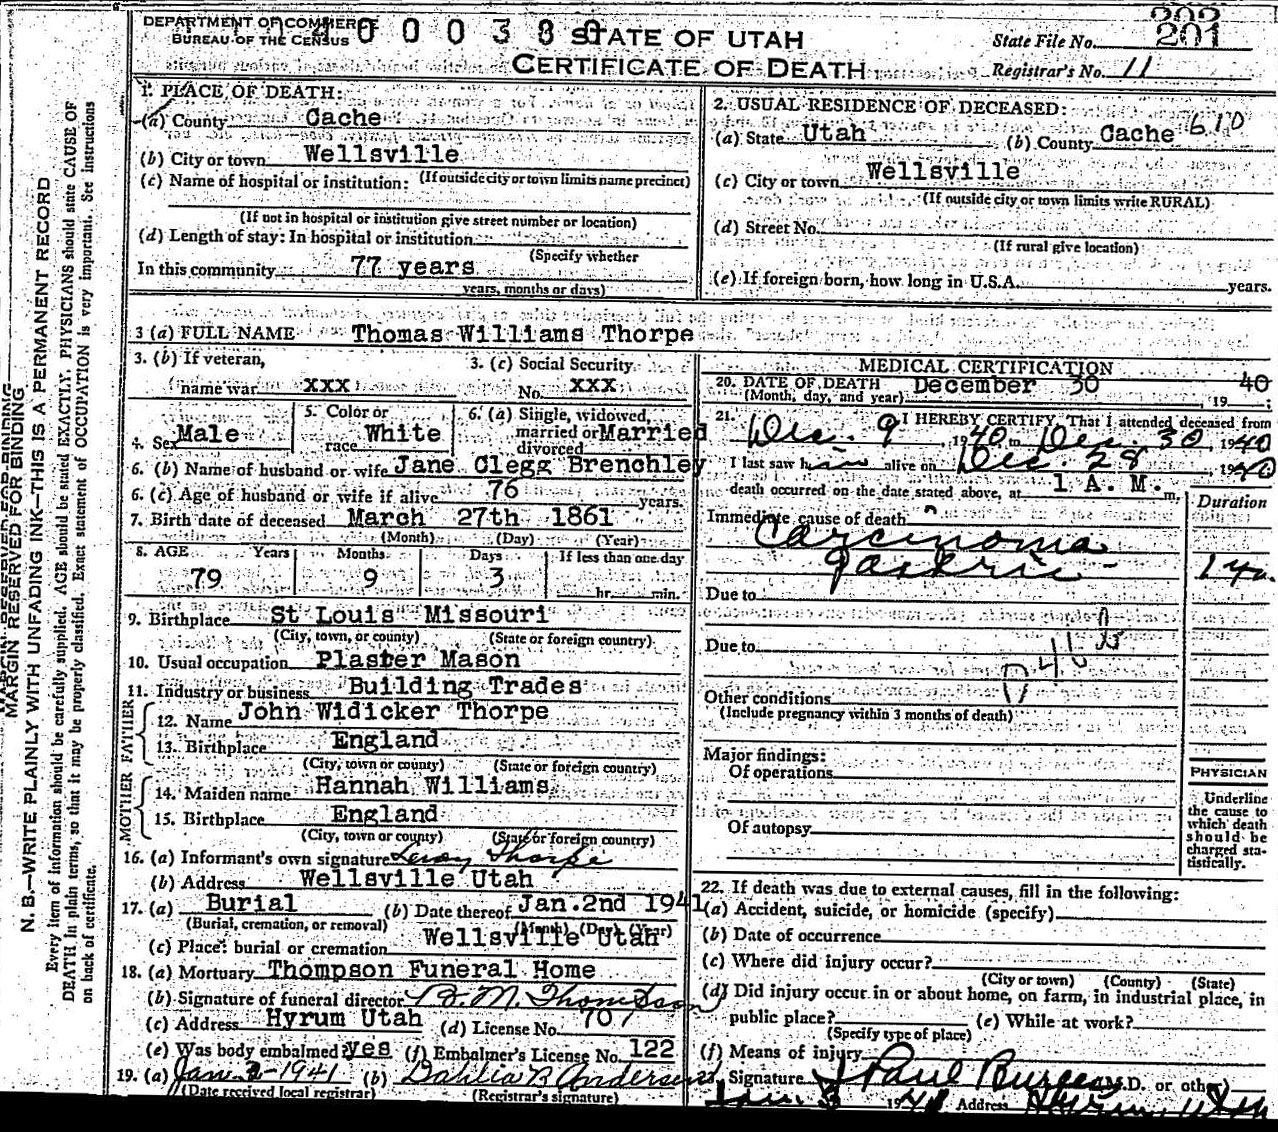 DEPARTMENT OF COMMERCE
BUREAU OF THE CENSUS
STATE OF UTAH
CERTIFICATE OF DEATH
State File No. 201
Registrar's No. 11
1. PLACE OF DEATH:
(a) County Cache
(b) City or town Wellsville
(If outside city or town limits name precinct)
(c) Name of hospital or institution:
(If not in hospital or institution give street number or location)
(d) Length of stay: In hospital or institution
(Specify whether
In this community 77 years
years, months or days)
2. USUAL RESIDENCE OF DECEASED:
(a) State Utah (b) County Cache 610
(c) City or town Wellsville
(If outside city or town limits write RURAL)
(d) Street No.
(If rural give location)
(e) If foreign born, how long in U.S.A. years.
3 (a) FULL NAME Thomas Williams Thorpe
3. (b) If veteran, name war xxx
3. (c) Social Security No. xxx
4. Sex Male
5. Color or race White
6. (a) Single, widowed, married or divorced Married
6. (b) Name of husband or wife Jane Clegg Brenchley
6. (c) Age of husband or wife if alive 76 years.
7. Birth date of deceased March 27th 1861
(Month) (Day) (Year)
8. AGE Years Months Days If less than one day
79 9 3 hr. min.
9. Birthplace St Louis Missouri
(City, town, or county) (State or foreign country)
10. Usual occupation Plaster Mason
11. Industry or business Building Trades
FATHER
12. Name John Widicker Thorpe
13. Birthplace England
(City, town or county) (State or foreign country)
MOTHER
14. Maiden name Hannah Williams
15. Birthplace England
(City, town or county) (State or foreign country)
16. (a) Informant's own signature Leroy Thorpe
(b) Address Wellsville Utah
17. (a) Burial (b) Date thereof Jan. 2nd 1941
(Burial, cremation, or removal) (Month) (Day) (Year)
(c) Place: burial or cremation Wellsville Utah
18. (a) Mortuary Thompson Funeral Home
(b) Signature of funeral director B. M. Thompson
(c) Address Hyrum Utah (d) License No. 707
(e) Was body embalmed? yes (f) Embalmer's License No. 122
19. (a) Jan. 3-1941 (b) Dahlia B Anderson
(Date received local registrar) (Registrar's signature)
MEDICAL CERTIFICATION
20. DATE OF DEATH December 30 , 1940;
(Month, day, and year)
21. I HEREBY CERTIFY, That I attended deceased from
Dec. 9, 1940 to Dec. 30, 1940
I last saw him alive on Dec. 28, 1940
death occurred on the date stated above, at 1 A. M. m,
Duration
Immediate cause of death
Carcinoma
gastric
Due to
Due to
Other conditions
(Include pregnancy within 3 months of death)
Major findings:
Of operations
Of autopsy
PHYSICIAN
Underline the cause to which death should be charged statistically.
22. If death was due to external causes, fill in the following:
(a) Accident, suicide, or homicide (specify)
(b) Date of occurrence
(c) Where did injury occur?
(City or town) (County) (State)
(d) Did injury occur in or about home, on farm, in industrial place, in
public place? (e) While at work?
(Specify type of place)
(f) Means of injury
23. Signature J Paul Burgess (M.D. or other)
Jan. 3 1941 Address Hyrum, Utah
MARGIN RESERVED FOR BINDING
N. B.—WRITE PLAINLY WITH UNFADING INK—THIS IS A PERMANENT RECORD
Every item of information should be carefully supplied. AGE should be stated EXACTLY. PHYSICIANS should state CAUSE OF
DEATH in plain terms, so that it may be properly classified. Exact statement of OCCUPATION is very important. See instructions
on back of certificate.